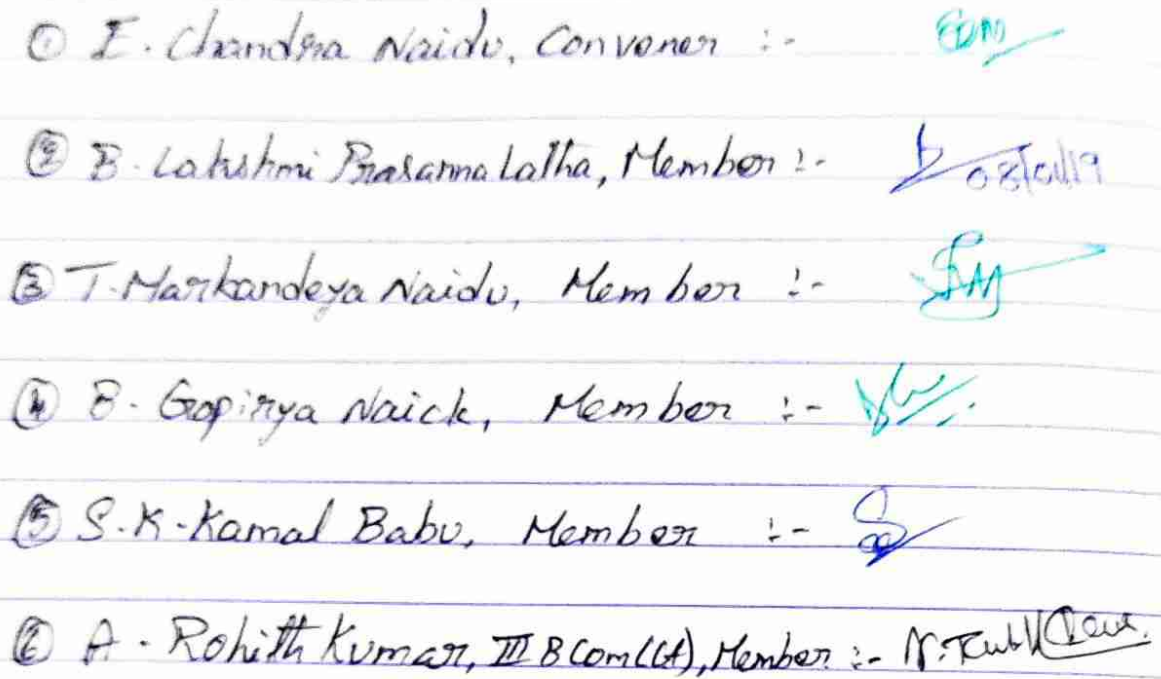 ① E. Chandra Naidu, Convener :-
② B. Lakshmi Prasanna Latha, Member :- 08/01/19
③ T. Markandeya Naidu, Member :-
④ B. Gopirya Naick, Member :-
⑤ S.K. Kamal Babu, Member :-
⑥ A. Rohith Kumar, III BCom(CA), Member :-